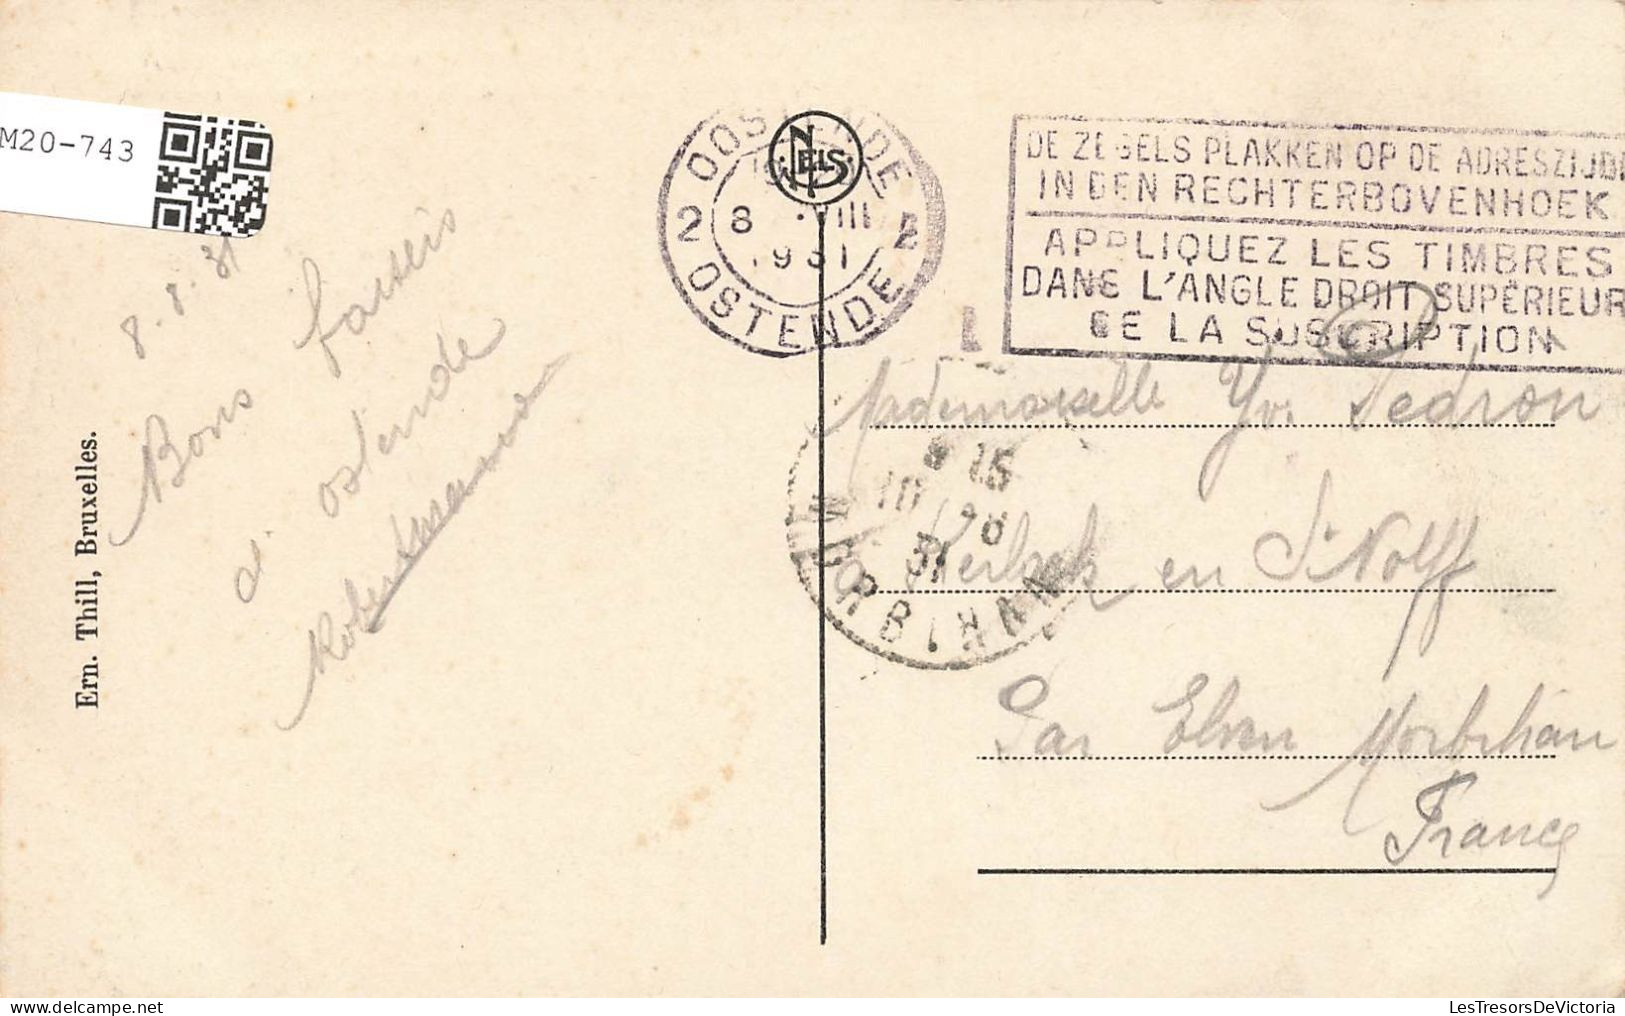 M20-743
8.8.31
Bons baisers
d'ostende
Ern. Thill, Bruxelles.
NELS
OOSTENDE
2 8 VIII
1931
OSTENDE
DE ZEGELS PLAKKEN OP DE ADRESZIJDE
IN DEN RECHTERBOVENHOEK
APPLIQUEZ LES TIMBRES
DANS L'ANGLE DROIT SUPÉRIEUR
DE LA SUSCRIPTION
Mademoiselle Yv. Pedron
en St Nolff
Par Elven Morbihan
France
15
10
31
MORBIHAN
LesTresorsDeVictoria